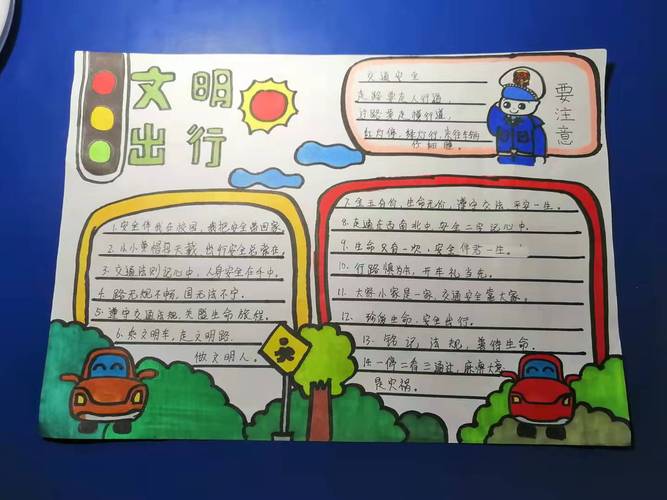 文明
出行
交通安全
走路要走人行道,
过路要走横行道,
红灯停,绿灯行,来往车辆
仔细瞧。
要注意
1.安全伴我在校园,我把安全带回家.
2.小小黄帽头戴,出行安全总牵住.
3.交通法则记心中,人身安全在手中.
4.路无规不畅,国无法不宁.
5.遵守交通法规,关爱生命旅程.
6.乘文明车,走文明路.
做文明人.
7.金玉有价,生命无价,遵守交法平安一生.
8.走遍东西南北中,安全二字记心中.
9.生命只有一次,安全伴君一生.
10.行路慎为本,开车礼当先.
11.大家小家是一家,交通安全靠大家.
12.珍爱生命,安全出行.
13.铭记法规,善待生命.
14.一停二看三通过,麻痹大意
是灾祸.